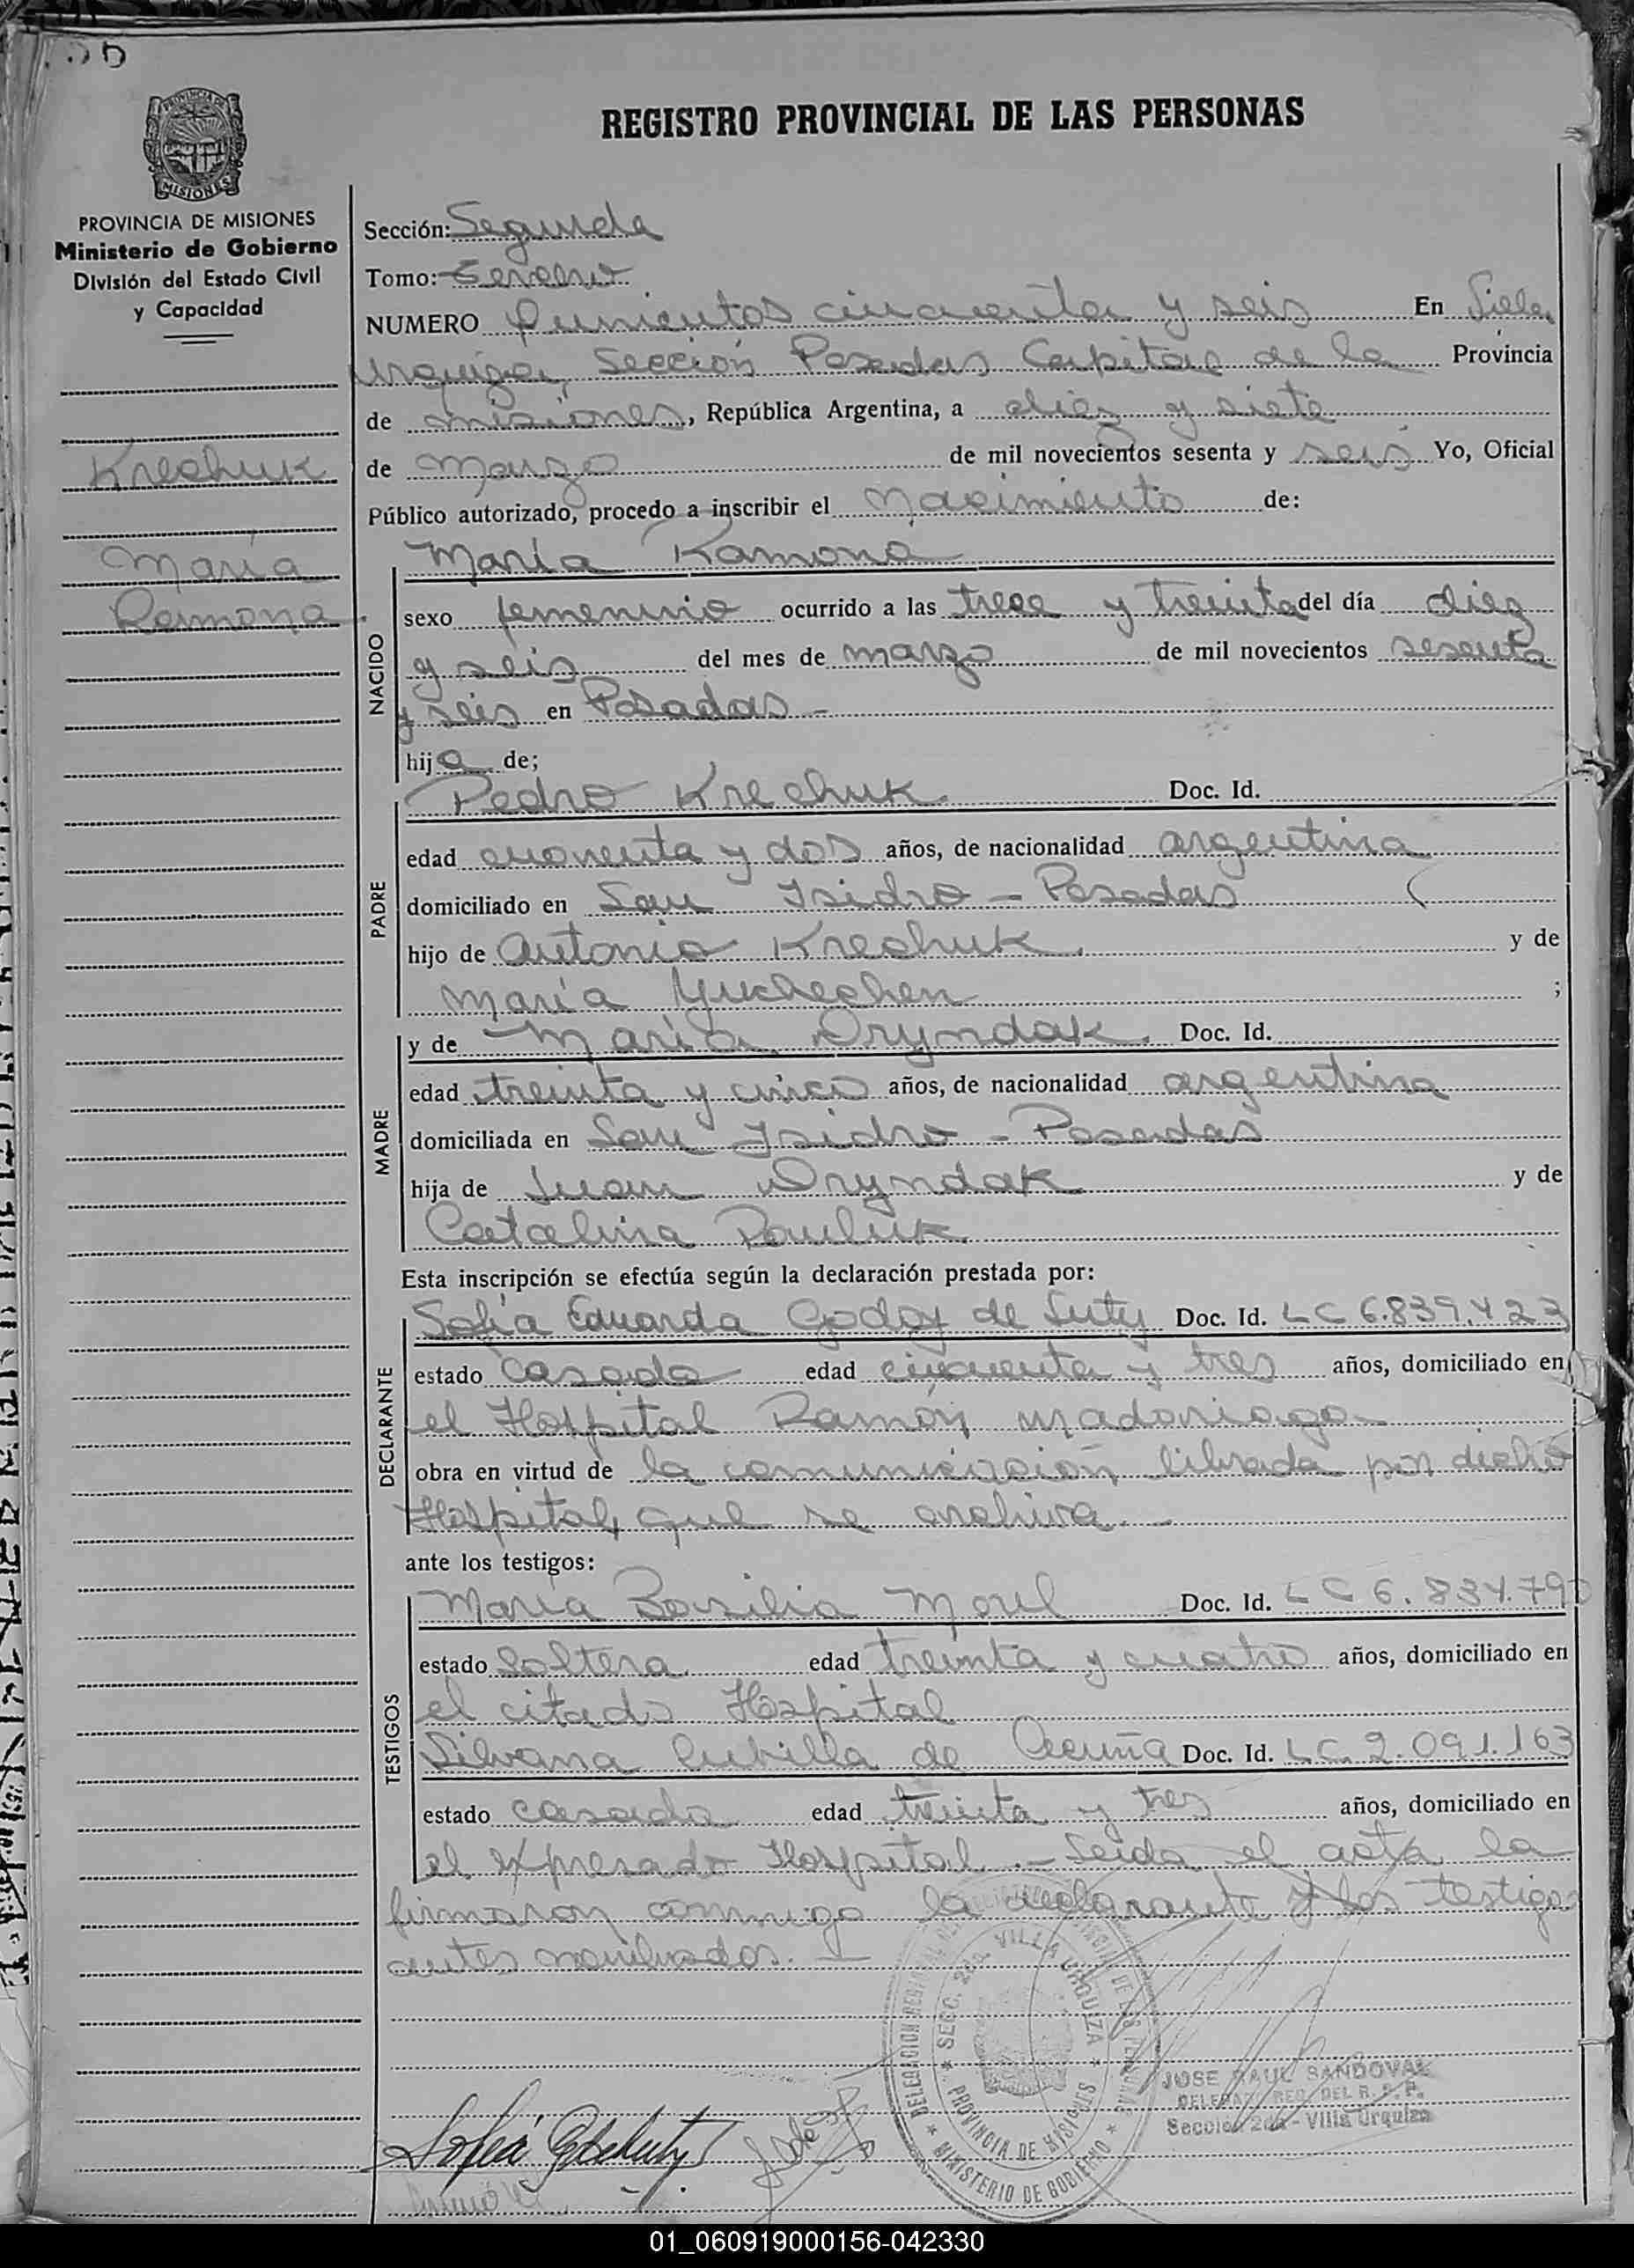 REGISTRO PROVINCIAL DE LAS PERSONAS
PROVINCIA DE
MISIONES
PROVINCIA DE MISIONES
Ministerio de Gobierno
División del Estado Civil
y Capacidad
Krechuk
María
Ramona
Sección: Segunda
Tomo: Tercero
NUMERO quinientos cincuenta y seis En Villa
Urquiza, Sección Posadas Capital de la Provincia
de misiones, República Argentina, a diez y siete
de marzo de mil novecientos sesenta y seis Yo, Oficial
Público autorizado, procedo a inscribir el nacimiento de:
María Ramona
NACIDO
sexo femenino ocurrido a las trece y treinta del día diez
y seis del mes de marzo de mil novecientos sesenta
y seis en Posadas -
hija de;
PADRE
Pedro Krechuk Doc. Id.
edad cuarenta y dos años, de nacionalidad argentina
domiciliado en San Isidro - Posadas
hijo de Antonio Krechuk y de
María ;
MADRE
y de María Dryndak. Doc. Id.
edad treinta y cinco años, de nacionalidad argentina
domiciliada en San Isidro - Posadas
hija de Juan Dryndak y de
Catalina Pauluk
Esta inscripción se efectúa según la declaración prestada por:
DECLARANTE
Sofía Eduarda Godoy de Suty Doc. Id. LC 6.839.423
estado casada edad cincuenta y tres años, domiciliado en
el Hospital Ramón Madariaga
obra en virtud de la comunicación librada por dicho
Hospital, que se archiva. -
ante los testigos:
TESTIGOS
María Basilia Morel Doc. Id. LC 6.834.790
estado soltera edad treinta y cuatro años, domiciliado en
el citado Hospital
Silvana Cubilla de Acuña Doc. Id. LC. 2.091.163
estado casada edad treinta y tres años, domiciliado en
el expresado Hospital. - Leída el acta la
firmaron conmigo la declarante y los testigos
antes nombrados. -
SECC. 2da. VILLA URQUIZA
PROVINCIA DE MISIONES
MINISTERIO DE GOBIERNO
JOSE RAUL SANDOVAL
DELEGADO REG. DEL R. P. P.
Sección 2da - Villa Urquiza
01_060919000156-042330